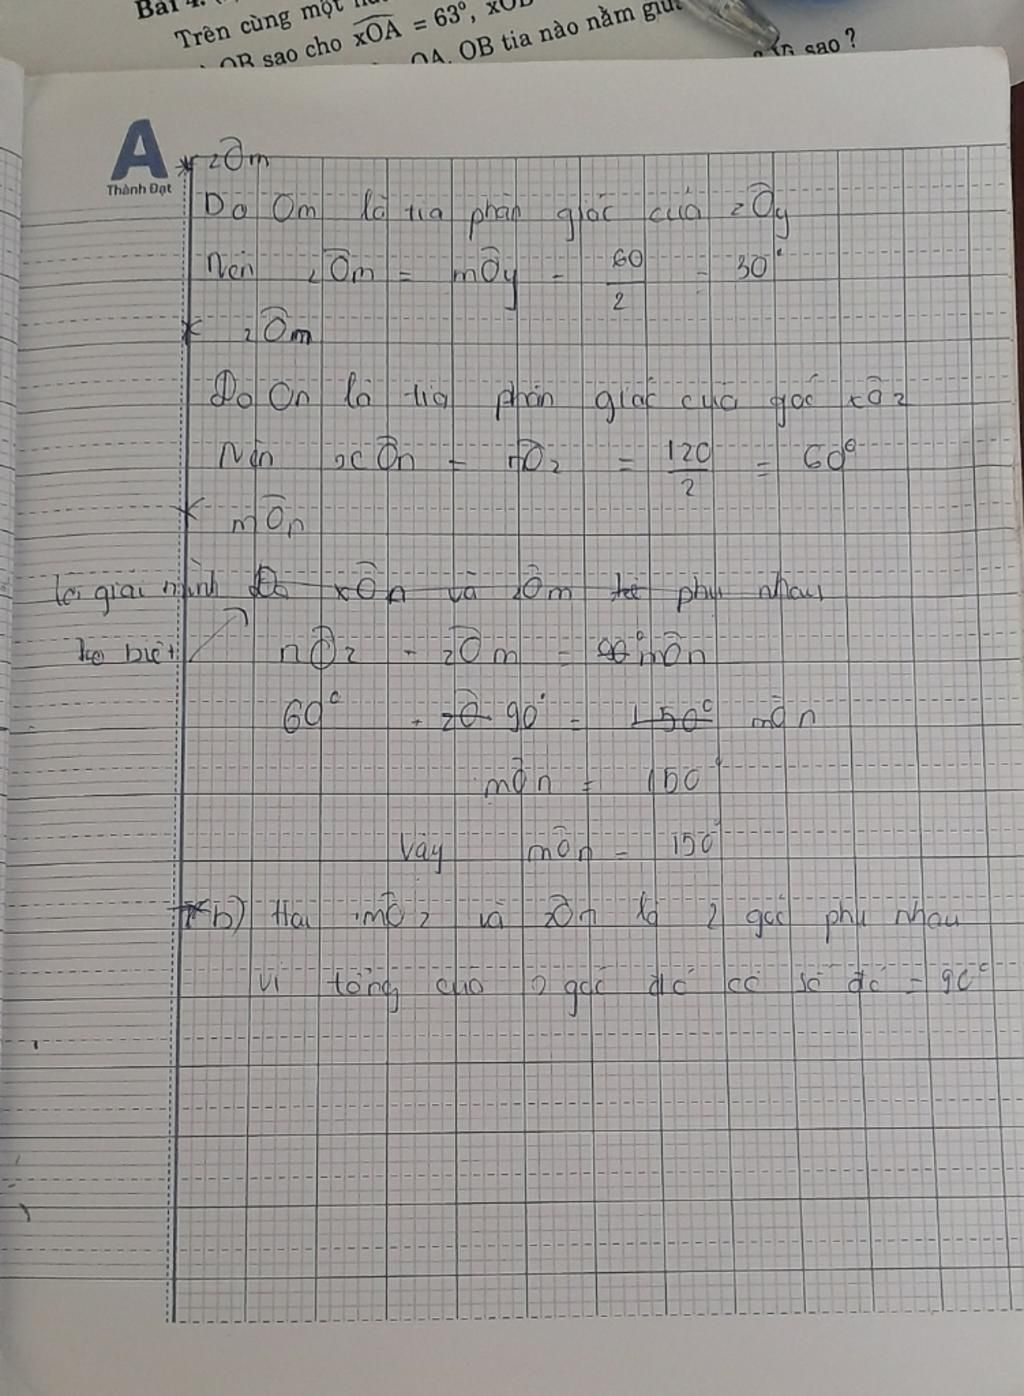 Trên cùng một
OB sao cho xOA = 63°,
OA, OB tia nào nằm giữ
sao ?
A
Thành Đạt
* zOm
Do Om là tia phân giác của zOy
Nên zOm = mOy = 60/2 = 30°
* zOm
Do On là tia phân giác của góc xOz
Nên xOn = nOz = 120/2 = 60°
* mOn
lời giải mình xOn và zOm phụ nhau
ko biết nOz + zOm = mOn
60° + 90° = 150° mOn
mOn = 150°
Vậy mOn = 150°
* b) Hai mOz và zOn là 2 góc phụ nhau
vì tổng của 2 góc đó có số đó = 90°